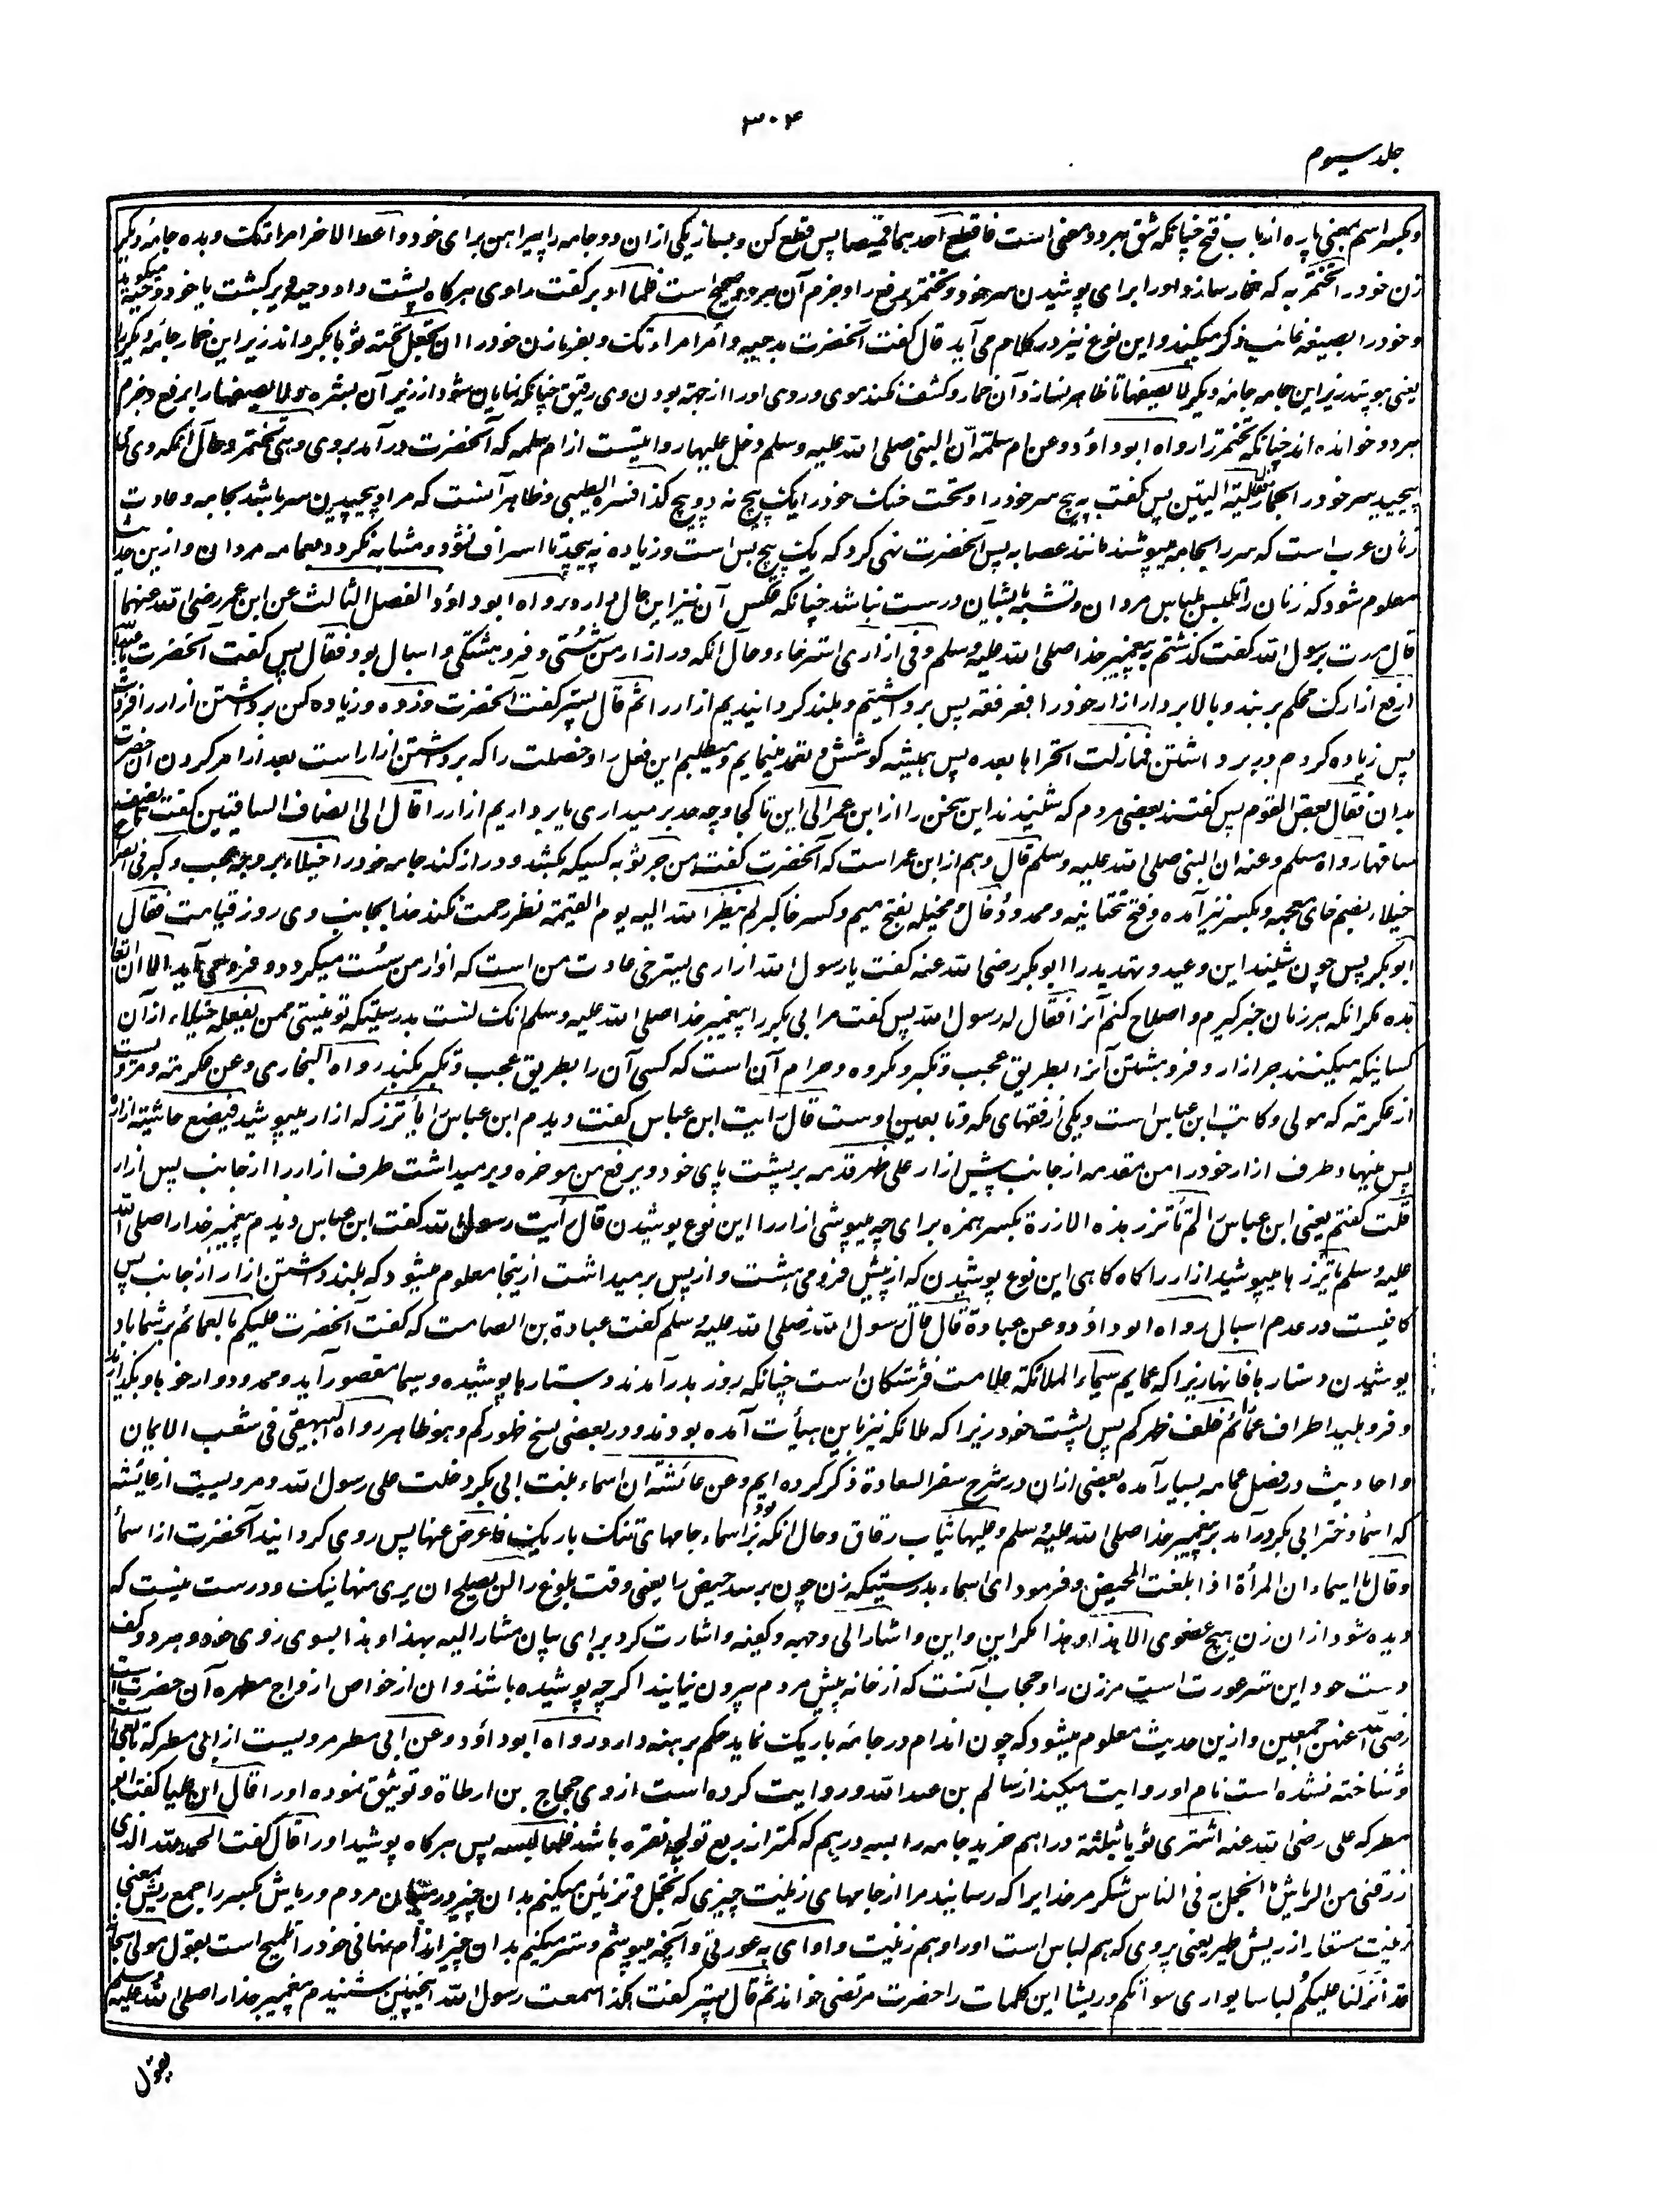 ۳۰۴
جلد سیوم
وبکسر اسم بمعنی پاره از باب فتح چنانکه شق بهر دو معنی است فاقطع احدهما قمیصا پس قطع کن و بساز یکی ازان دو جامه را پیراهن برای خود و اعط الآخر امراتک و بده جامه دیگر
زن خود را تختمر به که خمار سازد او را برای پوشیدن سر خود و تختمر برفع را و جزم آن هر دو صحیح است فلما ادبر گفت راوی هرگاه پشت داد دحیه و برگشت
و خود را بصیغه غائب ذکر میکند و این نوع نیز در کلام می آید قال گفت آنحضرت بدحیه وأمر امراتک و بفرما زن خود را ان تجعل تحته ثوبا بگرداند زیر این خمار جامه دیگر را
یعنی بپوشد زیر این جامه جامه دیگر لا یصفها تا ظاهر نسازد آن خمار و کشف نکند موی و روی او را از جهة بودن وی رقیق چنانکه نمایان شود از زیر آن بشره و لا یصفها را برفع و جزم
هر دو خوانده اند چنانکه تختمر را رواه ابو داؤد وعن ام سلمة انّ النبی صلی الله علیه وسلم دخل علیها روایتست از ام سلمه که آنحضرت در آمد بروی وهی تختمر و حال آنکه وی
پیچید سر خود را بخمار فقال لیة لا لیتین پس گفت به پیچ سر خود را و تحت حنک خود را یک پیچ نه دو پیچ کذا فسره الطیبی و ظاهر آنست که مراد پیچیدن سر باشد بجامه و عادت
زنان عرب است که سر را بجامه میپوشند مانند عصابه پس آنحضرت نهی کرد که یک پیچ بس است و زیاده نه پیچید تا اسراف نشود و مشابه نگردد بعمامه مردان و ازین حدیث
معلوم شود که زنان را تلبس بلباس مردان و تشبه بایشان درست نباشد چنانکه عکس آن نیز این حال دارد رواه ابو داؤد الفصل الثالث عن ابن عمر رضی الله عنهما
قال مررت برسول الله گفت گذشتم به پیغمبر خدا صلی الله علیه وسلم وفی ازاری استرخاء و حال آنکه در ازار من سُستی و فروهشتگی و اسبال بود فقال پس گفت آنحضرت یا عبد الله
ارفع ازارک محکم بربند و بالا بردار ازار خود را فرفعته پس برداشتیم و بلند گردانیدیم ازار را ثم قال پستر گفت آنحضرت زد و زیاده کن برداشتن ازار را فزدت
پس زیاده کردم در برداشتن فمازلت اتحراها بعد پس همیشه کوشش و تعمد مینمایم و میطلبم این فعل را و خصلت را که برداشتن ازار است بعد از امر کردن آن حضرت
بدان فقال بعض القوم پس گفتند بعضی مردم که شنیدند این سخن را از ابن عمر الی این تا کجا و چه حد بر میداری یا برداریم ازار را قال الی انصاف الساقین گفت تا نصف
ساقها رواه مسلم وعنه ان النبی صلی الله علیه وسلم قال و هم از ابن عمر است که آنحضرت گفت من جر ثوبه کسیکه بکشد و دراز کند جامه خود را خیلاء بر وجه عجب و کبر
خیلاء بضم خای معجمه و بکسر نیز آمده و فتح تحتانیه و ممدود و خال و مخیله بفتح میم و کسر خا کبر لم ینظر الله الیه یوم القیمة نظر رحمت نکند خدا بجانب وی روز قیامت فقال
ابو بکر پس چون شنید این وعید و تهدید را ابو بکر رضی الله عنه گفت یا رسول الله ازاری یسترخی عادت من است که ازار من سُست میگردد و فرو می آید الا ان اتعا
هده مگر انکه هر زمان خبر گیرم و اصلاح کنم آنرا فقال له رسول الله پس گفت مر ابی بکر را پیغمبر خدا صلی الله علیه وسلم انک لست بدرستیکه تو نیستی ممن یفعله خیلاء از آن
کسانیکه میکنند جر ازار و فروهشتن آنرا بطریق عجب و تکبر و مکروه و حرام آن است که کسی آن را بطریق عجب و تکبر بکند رواه البخاری وعن عکرمة و مرویست
از عکرمة که مولی و کاتب ابن عباس است و یکی از فقهای مکه و تابعین اوست قال رایت ابن عباس گفت دیدم ابن عباس را یأتزر که ازار میپوشید فیضع حاشیة ازاره
پس مینهاد طرف ازار خود را من مقدمه از جانب پیش ازار علی ظهر قدمه بر پشت پای خود ویرفع من موخره و بر میداشت طرف ازار را از جانب پس ازار
قلت گفتم یعنی ابن عباس را لم تأتزر هذه الازرة بکسر همزه برای چه میپوشی ازار را این نوع پوشیدن قال رأیت رسول الله گفت ابن عباس دیدم پیغمبر خدا را صلی الله
علیه وسلم یأتزرها میپوشید ازار را گاه گاهی این نوع پوشیدن که از پیش فرو می هشت و از پس بر میداشت ازینجا معلوم میشود که بلند داشتن ازار از جانب پس
کافیست در عدم اسبال رواه ابو داؤد وعن عبادة قال قال رسول الله صلی الله علیه وسلم گفت عبادة بن الصامت که گفت آنحضرت علیکم بالعمائم بر شما باد
پوشیدن دستارها فانها زیرا که عمایم سیماء الملائکة علامت فرشتگان است چنانکه روز بدر آمدند دستارها پوشیده و سیما مقصور آید و ممدود وارخوها و بگذارید
و فرو هلید اطراف عمائم را خلف ظهرکم پس پشت خود زیرا که ملائکه نیز باین هیأت آمده بودند و در بعضی نسخ ظهورکم وهو ظاهر رواه البیهقی فی شعب الایمان
و احادیث در فضل عمامه بسیار آمده بعضی ازان در شرح سفر السعادة ذکر کرده ایم وعن عائشة ان اسماء بنت ابی بکر دخلت علی رسول الله و مرویست از عایشه
که اسماء دختر ابی بکر در آمد بر پیغمبر خدا صلی الله علیه وسلم وعلیها ثیاب رقاق و حال انکه بود بر اسماء جامهای تنک باریک فاعرض عنها پس روی گردانید آنحضرت از اسماء
وقال یا اسماء ان المرأة اذا بلغت المحیض و فرمود ای اسماء بدرستیکه زن چون برسد حیض را یعنی وقت بلوغ را لن یصلح ان یری منها نیک و درست نیست که
دیده شود ازان زن هیچ عضوی الا هذا وهذا مگر این و این واشار الی وجهه وکفیه و اشارت کرد برای بیان مشار الیه بهذا و هذا بسوی روی خود و هر دو کف
دست خود این ستر عورت است مر زن را و حجاب آنست که از خانه پیش مردم بیرون نیایند اگرچه پوشیده باشند و ان از خواص ازواج مطهره آن حضرت است
رضی الله عنهن اجمعین و ازین حدیث معلوم میشود که چون اندام در جامه باریک نماید حکم برهنه دارد رواه ابو داؤد وعن ابی مطر مرویست از ابی مطر که تابعی است
و شناخته نشده است نام او روایت میکند از سالم بن عبد الله و روایت کرده است از وی حجاج بن ارطاة و توثیق نموده او را قال ان علیا گفت ابو
مطر که علی رضی الله عنه اشتری ثوبا بثلثة دراهم خرید جامه را بسه درهم که کمتر از ربع تولچه نقره باشد فلما لبسه پس هرگاه پوشید او را قال گفت الحمد لله الذی
رزقنی من الریاش ما اتجمل به فی الناس شکر مر خدا یرا که رسانید مرا از جامهای زینت چیزی که تجمل و تزئین میکنم بدان چیز در میان مردم و ریاش بکسر را جمع ریش بمعنی
زینت مستعار از ریش طیر یعنی پر وی که هم لباس است او را و هم زینت واواری به عورتی و آنچه میپوشم و ستر میکنم بدان چیز اندام نهانی خود را تلمیح است بقول مولی سبحانه
قد انزلنا علیکم لباسا یواری سوآتکم وریشا این کلمات را حضرت مرتضی خواند ثم قال پستر گفت هکذا سمعت رسول الله همچنین شنیدم پیغمبر خدا را صلی الله علیه وسلم
یقول